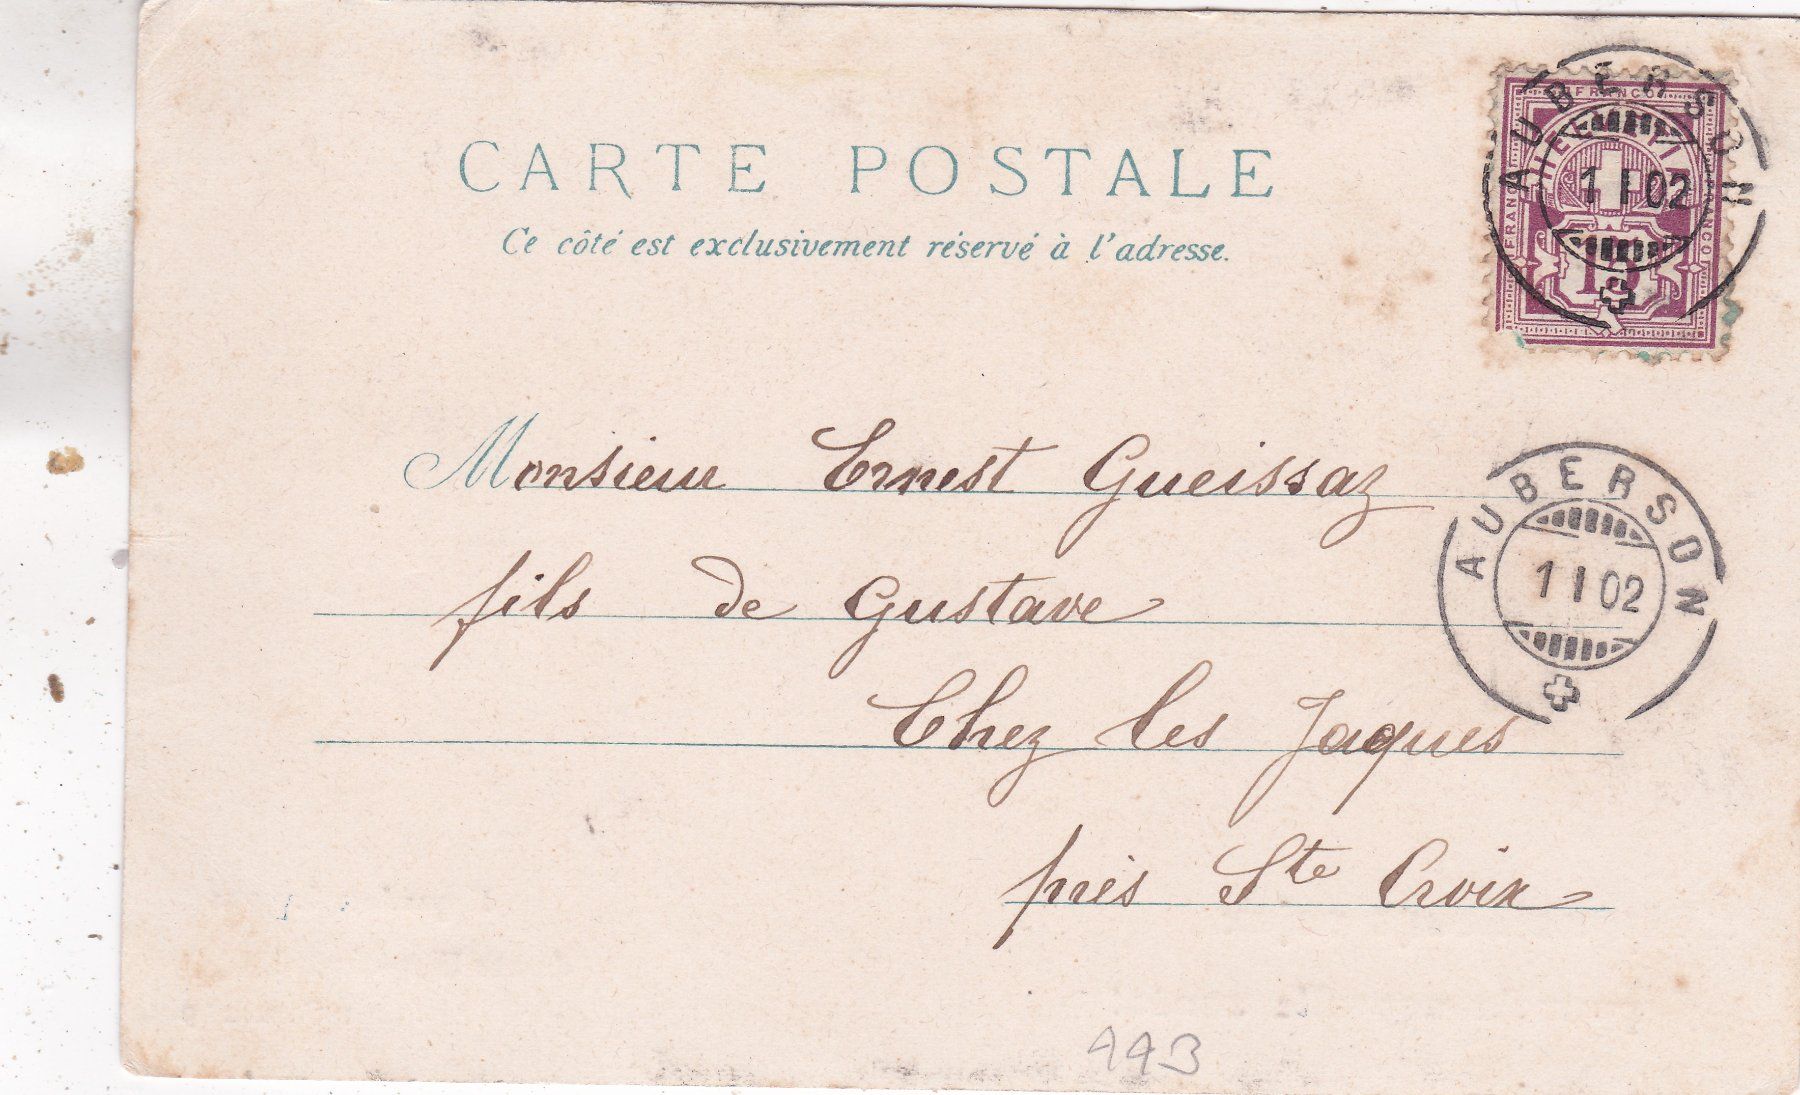 CARTE POSTALE
Ce côté est exclusivement réservé à l'adresse.
FRANCO
FRANCO
FRANCO
HELVETIA
15
AUBERSON
1 I 02
Monsieur Ernest Gueissaz
fils de Gustave
Chez les Jaques
près Ste Croix
AUBERSON
1 I 02